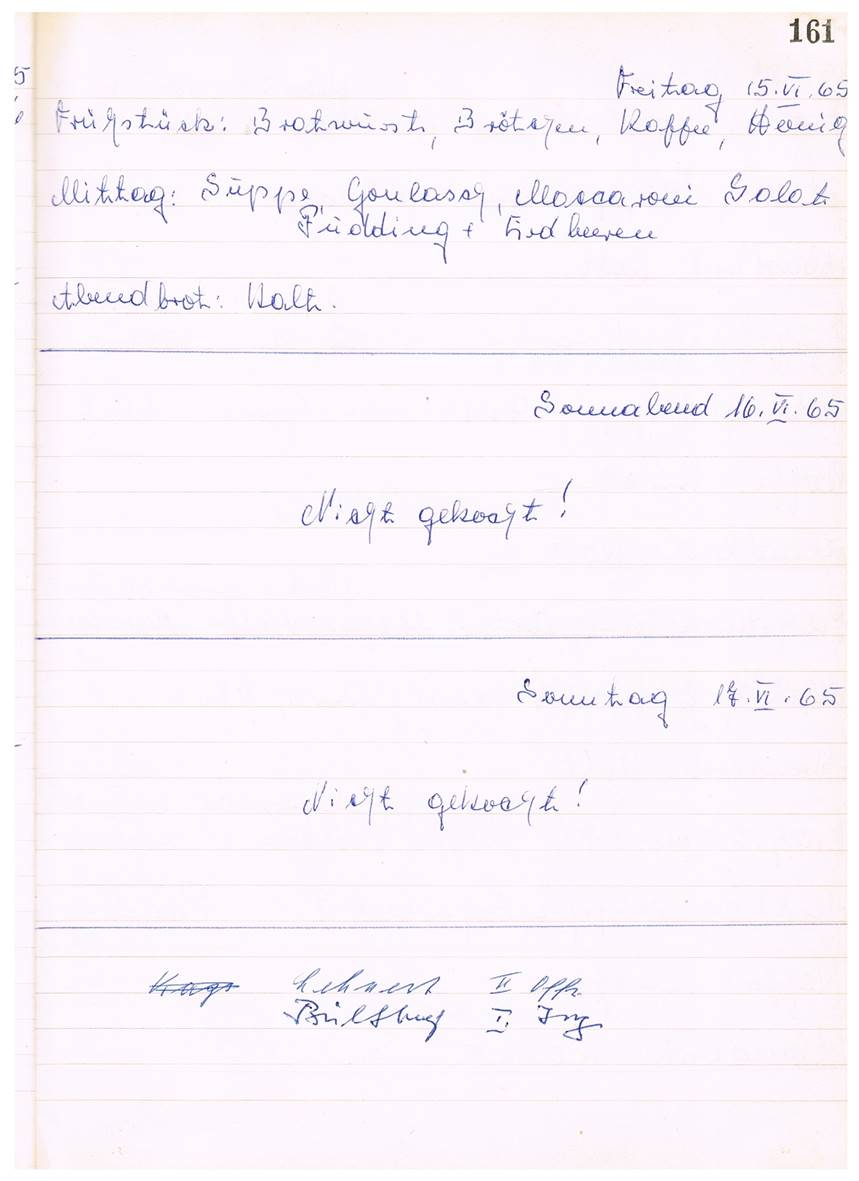 161
Freitag 15.VI.65
Frühstück: Bratwurst, Brötchen, Kaffee, Honig
Mittag: Suppe, Goulasch, Maccaroni Salat
Pudding + Erdbeeren
Abendbrot: Kalt.
Sonnabend 16.VI.65
Nicht gekocht!
Sonntag 17.VI.65
Nicht gekocht!
Lehnert II Offz.
I. Ing